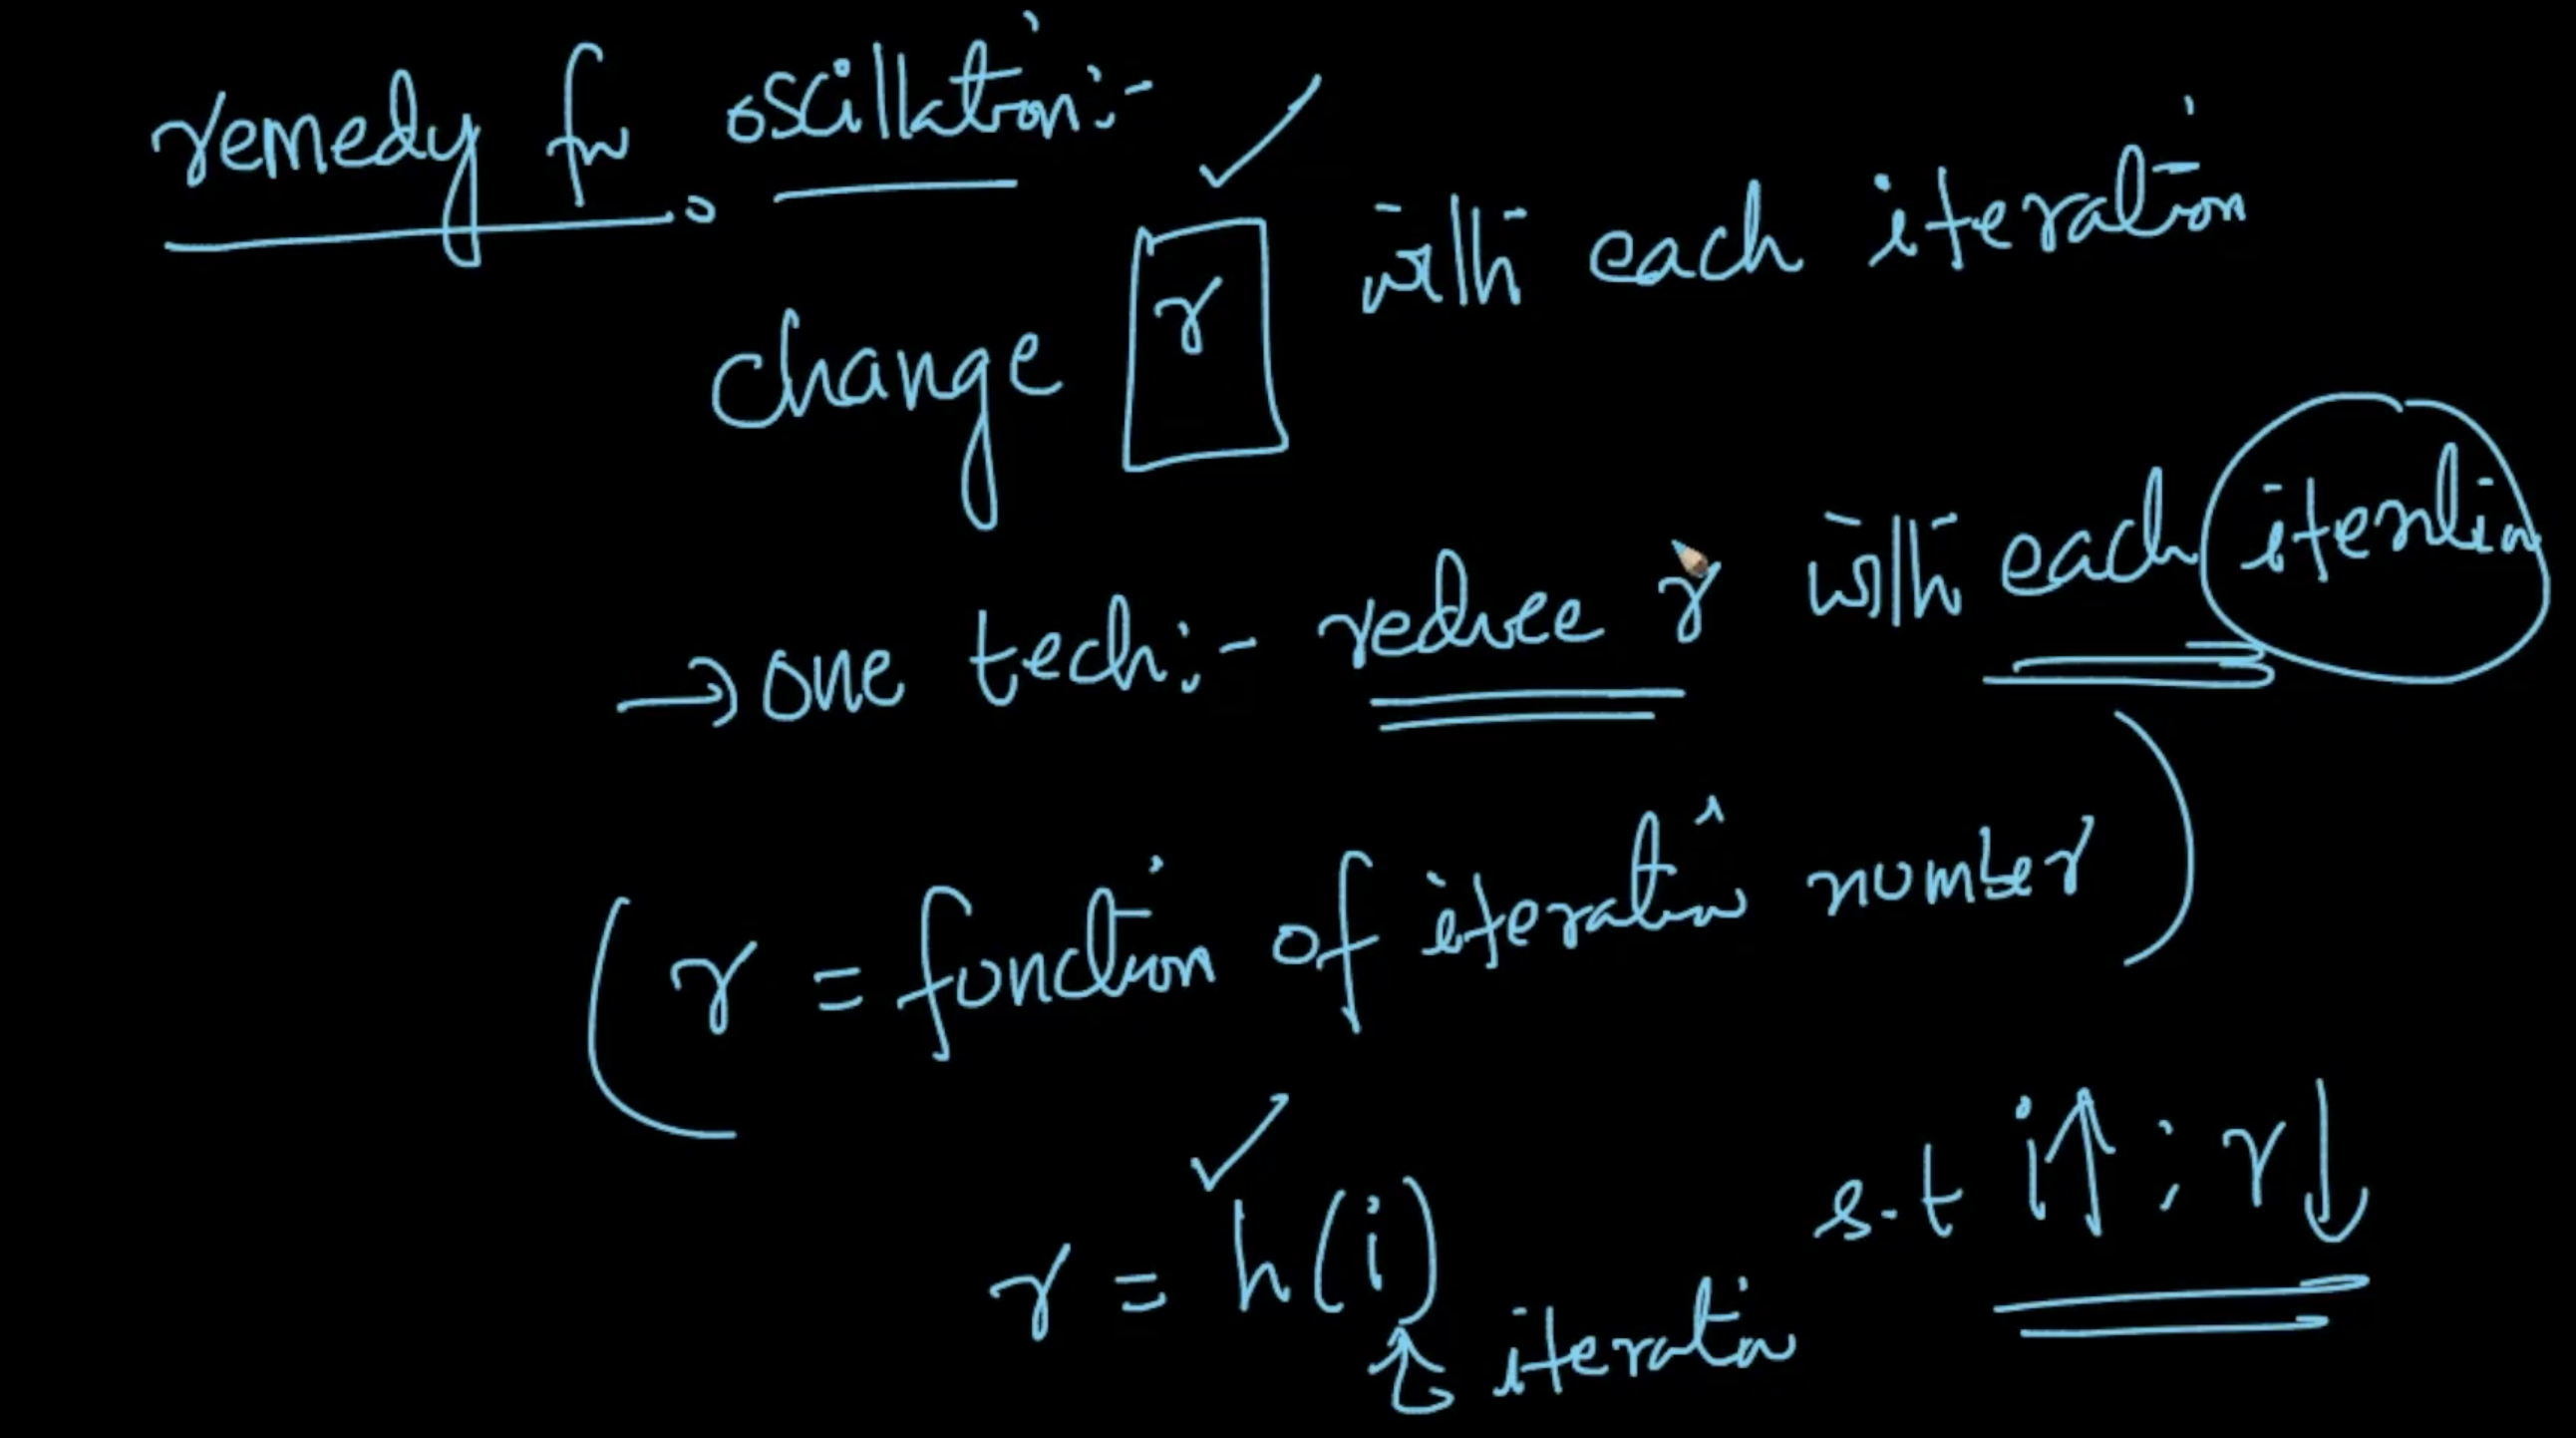 remedy for oscillation:-
change r with each iteration
→ one tech:- reduce r with each iteration
(r = function of iteration number)
r = h(i) s.t i↑ ; r↓
↑ iteration